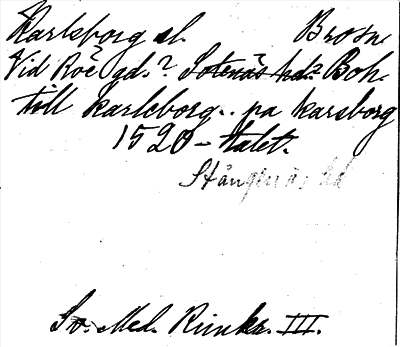 Karlsborg sl. Brosn
Vid Roe gd.? Sotenäs hd? Boh.
till Karleborg.. pa Karsborg
1520-talet.
Stångenäs hd
Sv. Med. Runkr. III.